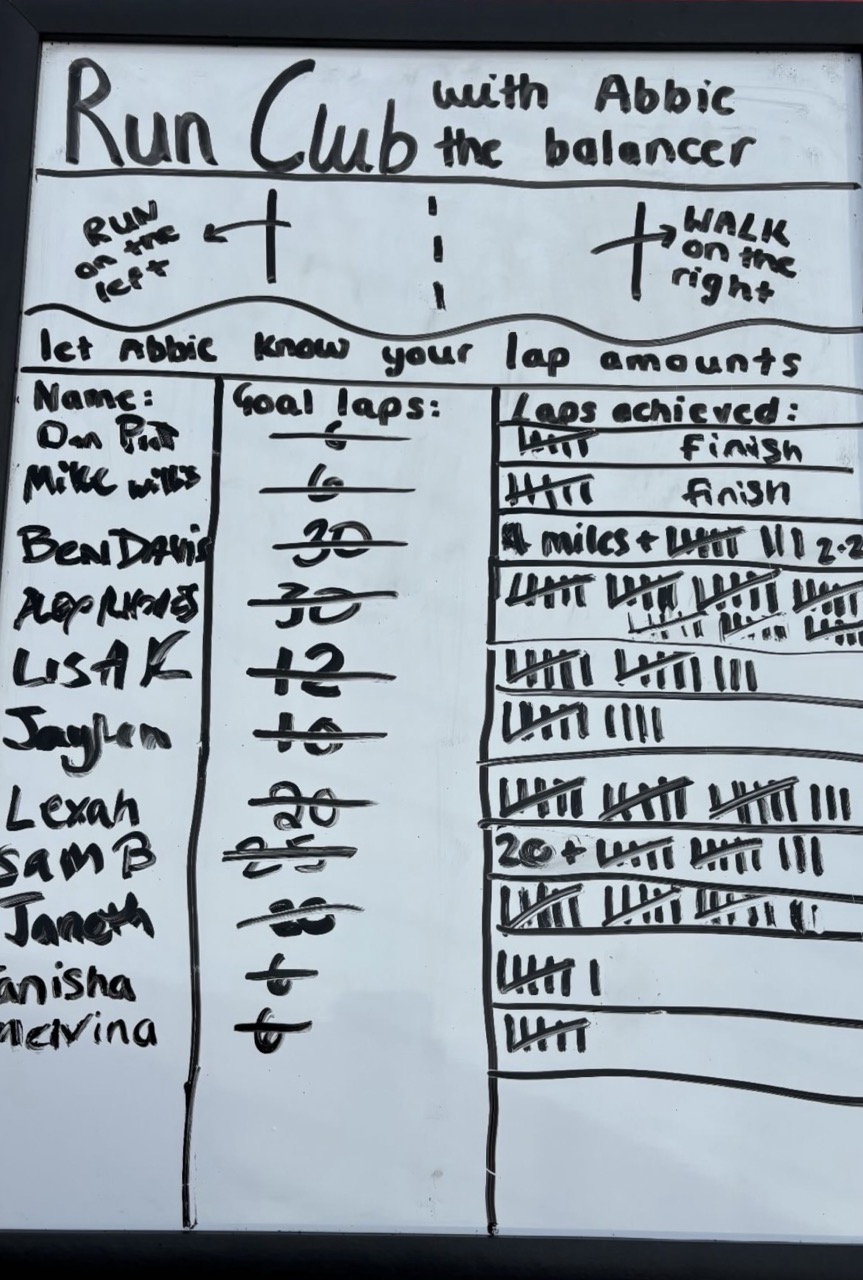 Run Club with Abbie
the balancer
RUN on the left
WALK on the right
let Abbie know your lap amounts
Name: Goal laps: Laps achieved:
6 Finish
Mike Willis 6 finish
Ben Davis 30 4 miles +
30
Lisa K 12
Jaylen 10
Lexah 20
Sam B 25 20 +
Janeth 8
anisha 6
melvina 6